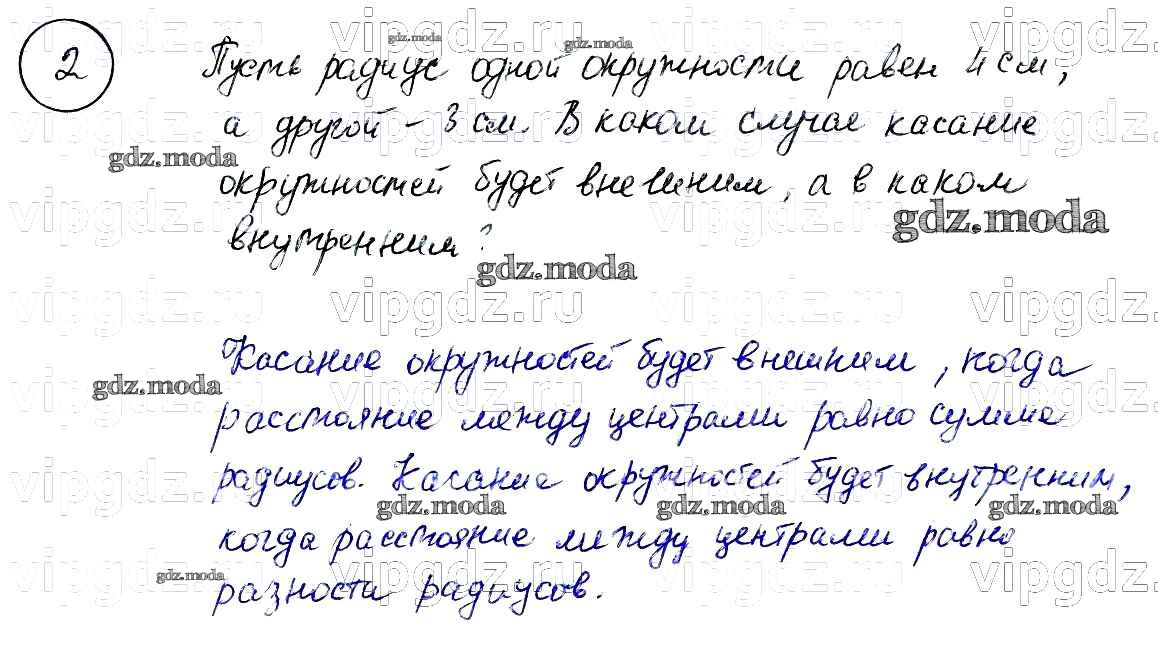 2
Пусть радиус одной окружности равен 4 см,
а другой - 3 см. В каком случае касание
окружностей будет внешним, а в каком
внутренним?
Касание окружностей будет внешним, когда
расстояние между центрами равно сумме
радиусов. Касание окружностей будет внутренним,
когда расстояние между центрами равно
разности радиусов.
vipgdz.ru
gdz.moda